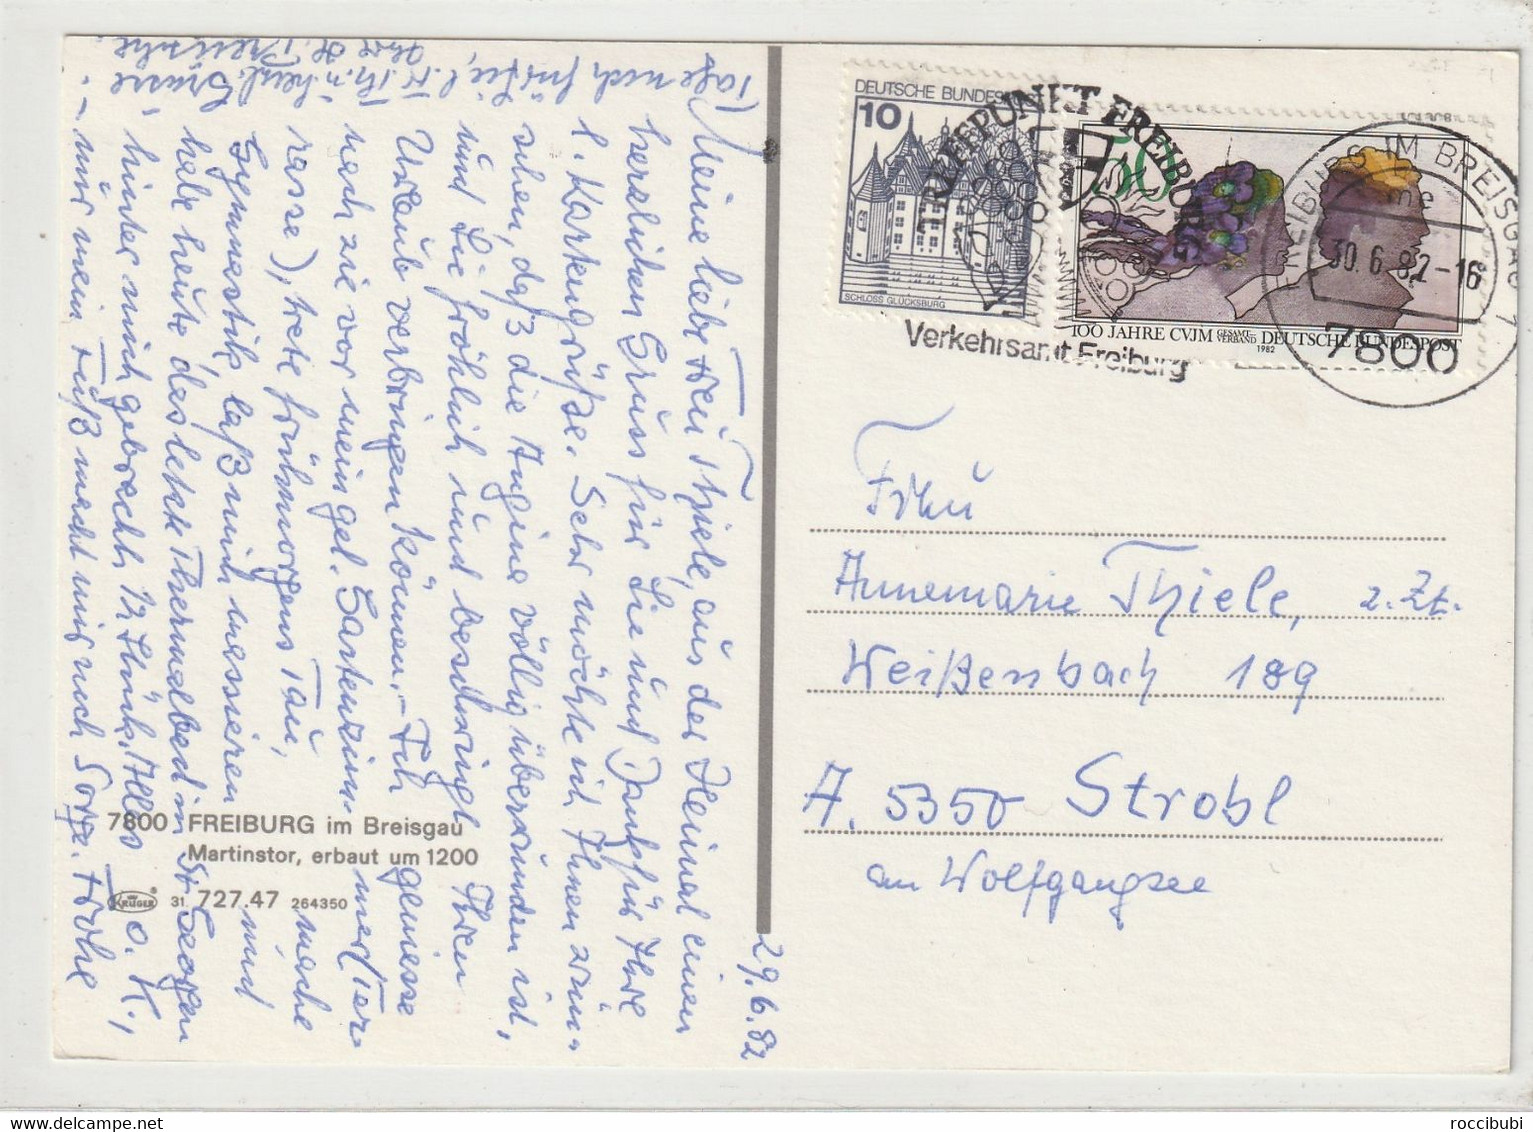 29.6.82
Meine liebe Frau Thiele, aus der Heimat einen
herzlichen Gruss für Sie und Dank für Ihre
l. Kartengrüße. Sehr möchte ich Ihnen wün-
schen, daß die Angina völlig überwunden ist,
und Sie fröhlich und beschwingt Ihren
Urlaub verbringen können. - Ich geniesse
nach wie vor mein gel. Gartenzimmer (Ter-
rasse), trete frühmorgens Tau, mache
Gymnastik, laß mich massieren und
habe heute das letzte Thermalbad in St. Georgen
hinter mich gebracht, 12 Stück. Alles o.K.,
- nur mein Fuß macht mir noch Sorge. Frohe
Tage noch für Sie, l. Fr. Th. herzl. Grüsse
Ihre
DEUTSCHE BUNDESPOST
10
SCHLOSS GLÜCKSBURG
50
100 JAHRE CVJM GESAMT-VERBAND DEUTSCHE BUNDESPOST
1982
TREFFPUNKT FREIBURG
Verkehrsamt Freiburg
FREIBURG IM BREISGAU 1
me
30.6.82-16
7800
Frau
Annemarie Thiele, z. Zt.
Weißenbach 189
A. 5350 Strobl
am Wolfgangsee
7800 FREIBURG im Breisgau
Martinstor, erbaut um 1200
KRÜGER ® 31 727.47 264350
roccibubi